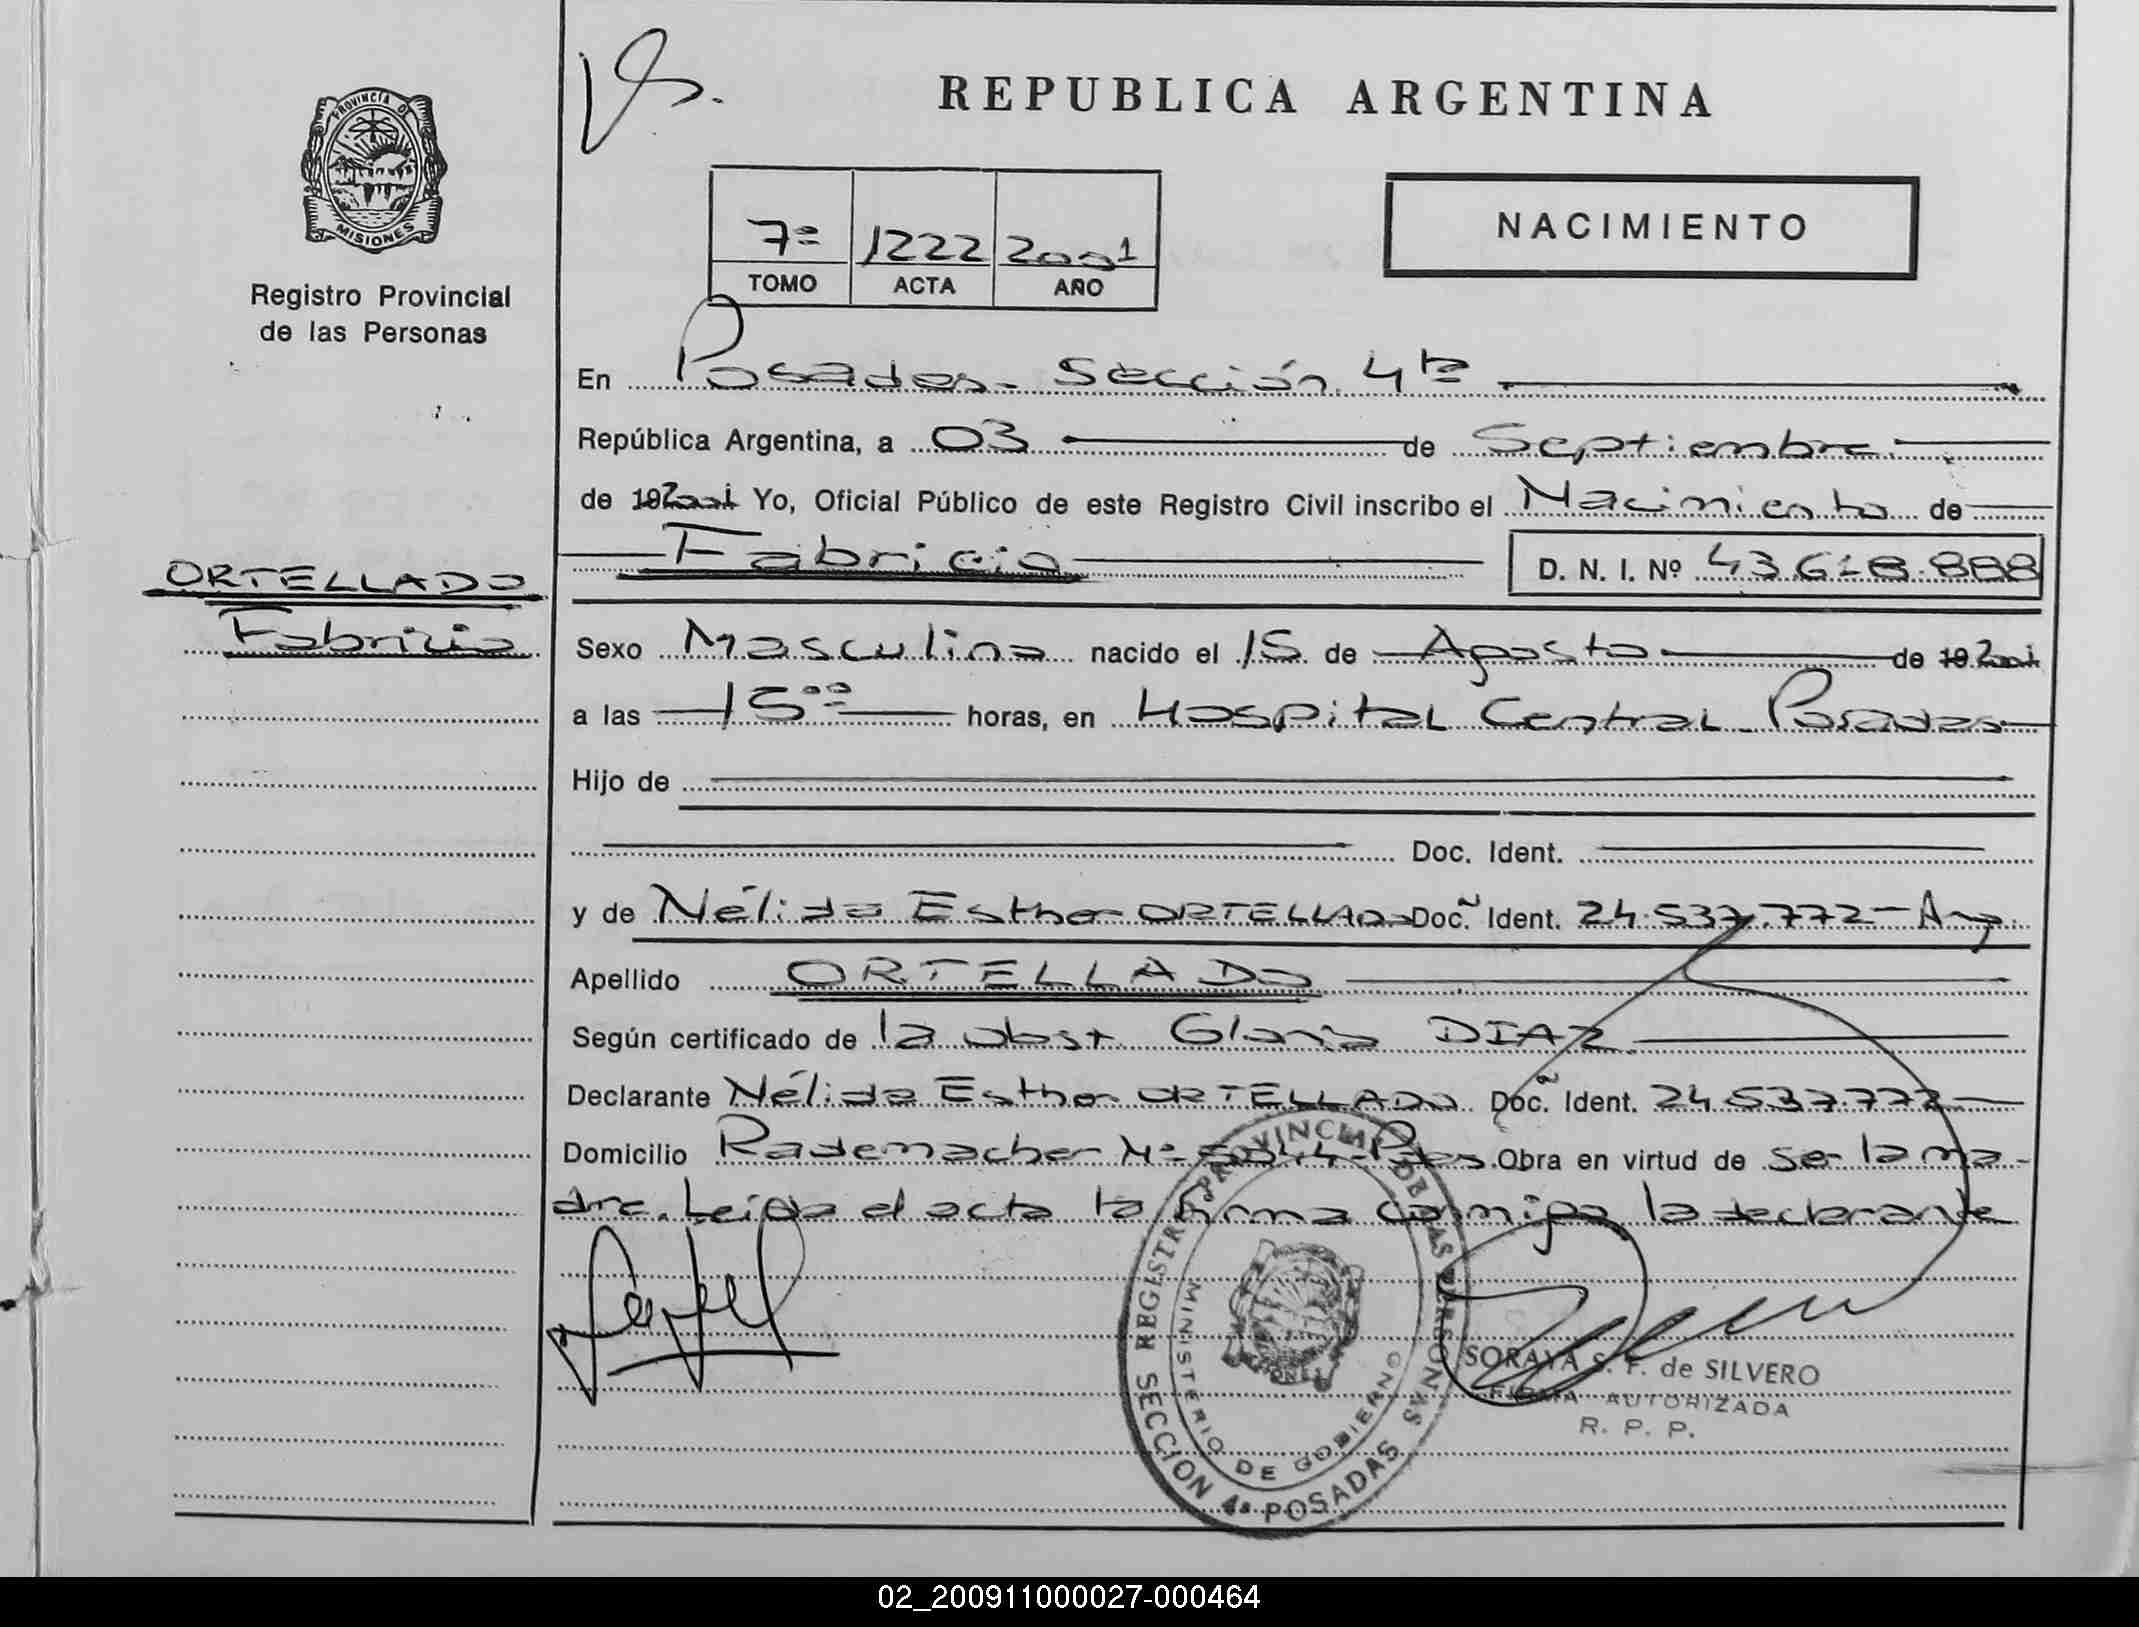 REPUBLICA ARGENTINA
PROVINCIA DE
MISIONES
Registro Provincial
de las Personas
7º 1222 2001
TOMO ACTA AÑO
NACIMIENTO
En Posadas - Sección 4ta
República Argentina, a 03 de Septiembre
de 19 2001 Yo, Oficial Público de este Registro Civil inscribo el Nacimiento de
Fabricio D. N. I. Nº 43.618.888
ORTELLADO
Fabricio
Sexo Masculino nacido el 15 de Agosto de 19 2001
a las 15ºº horas, en Hospital Central Posadas
Hijo de
Doc. Ident.
y de Nélida Esther ORTELLADO Doc. Ident. 24.537.772 - Arg.
Apellido ORTELLADO
Según certificado de la obst. Gloria DIAZ
Declarante Nélida Esther ORTELLADO Doc. Ident. 24.537.772
Domicilio Rademacher Nº Pdas. Obra en virtud de ser la ma-
dre. Leída el acta la firma conmigo la declarante
REGISTRO PROVINCIAL DE LAS PERSONAS
MINISTERIO DE GOBIERNO
SECCION 4ª POSADAS
SORAYA S. F. de SILVERO
FIRMA AUTORIZADA
R. P. P.
02_200911000027-000464